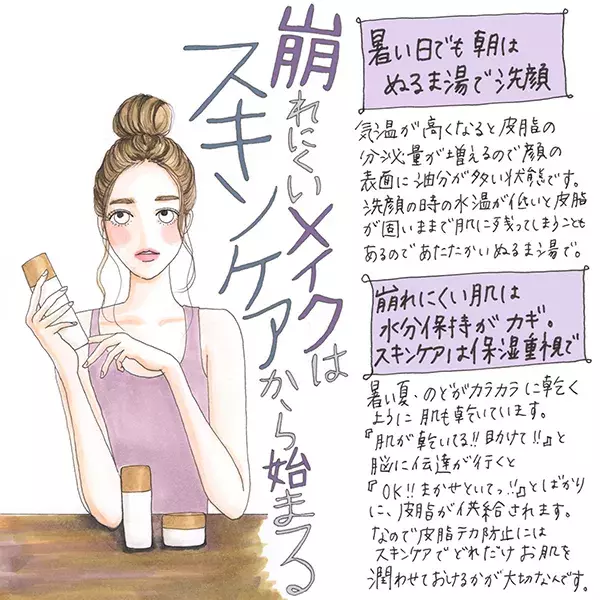 崩れにくいメイクは
スキンケアから始まる
暑い日でも朝は
ぬるま湯で洗顔
気温が高くなると皮脂の
分泌量が増えるので顔の
表面に油分が多い状態です。
洗顔の時の水温が低いと皮脂
が固いままで肌に残ってしまうことも
あるのであたたかいぬるま湯で。
崩れにくい肌は
水分保持がカギ。
スキンケアは保湿重視で
暑い夏、のどがカラカラに乾く
ように肌も乾いています。
『肌が乾いてる!!助けて!!』と
脳に伝達が行くと
『OK!!まかせといてっ!!』とばかり
に、皮脂が供給されます。
なので皮脂テカ防止には
スキンケアでどれだけお肌を
潤わせておけるかが大切なんです。